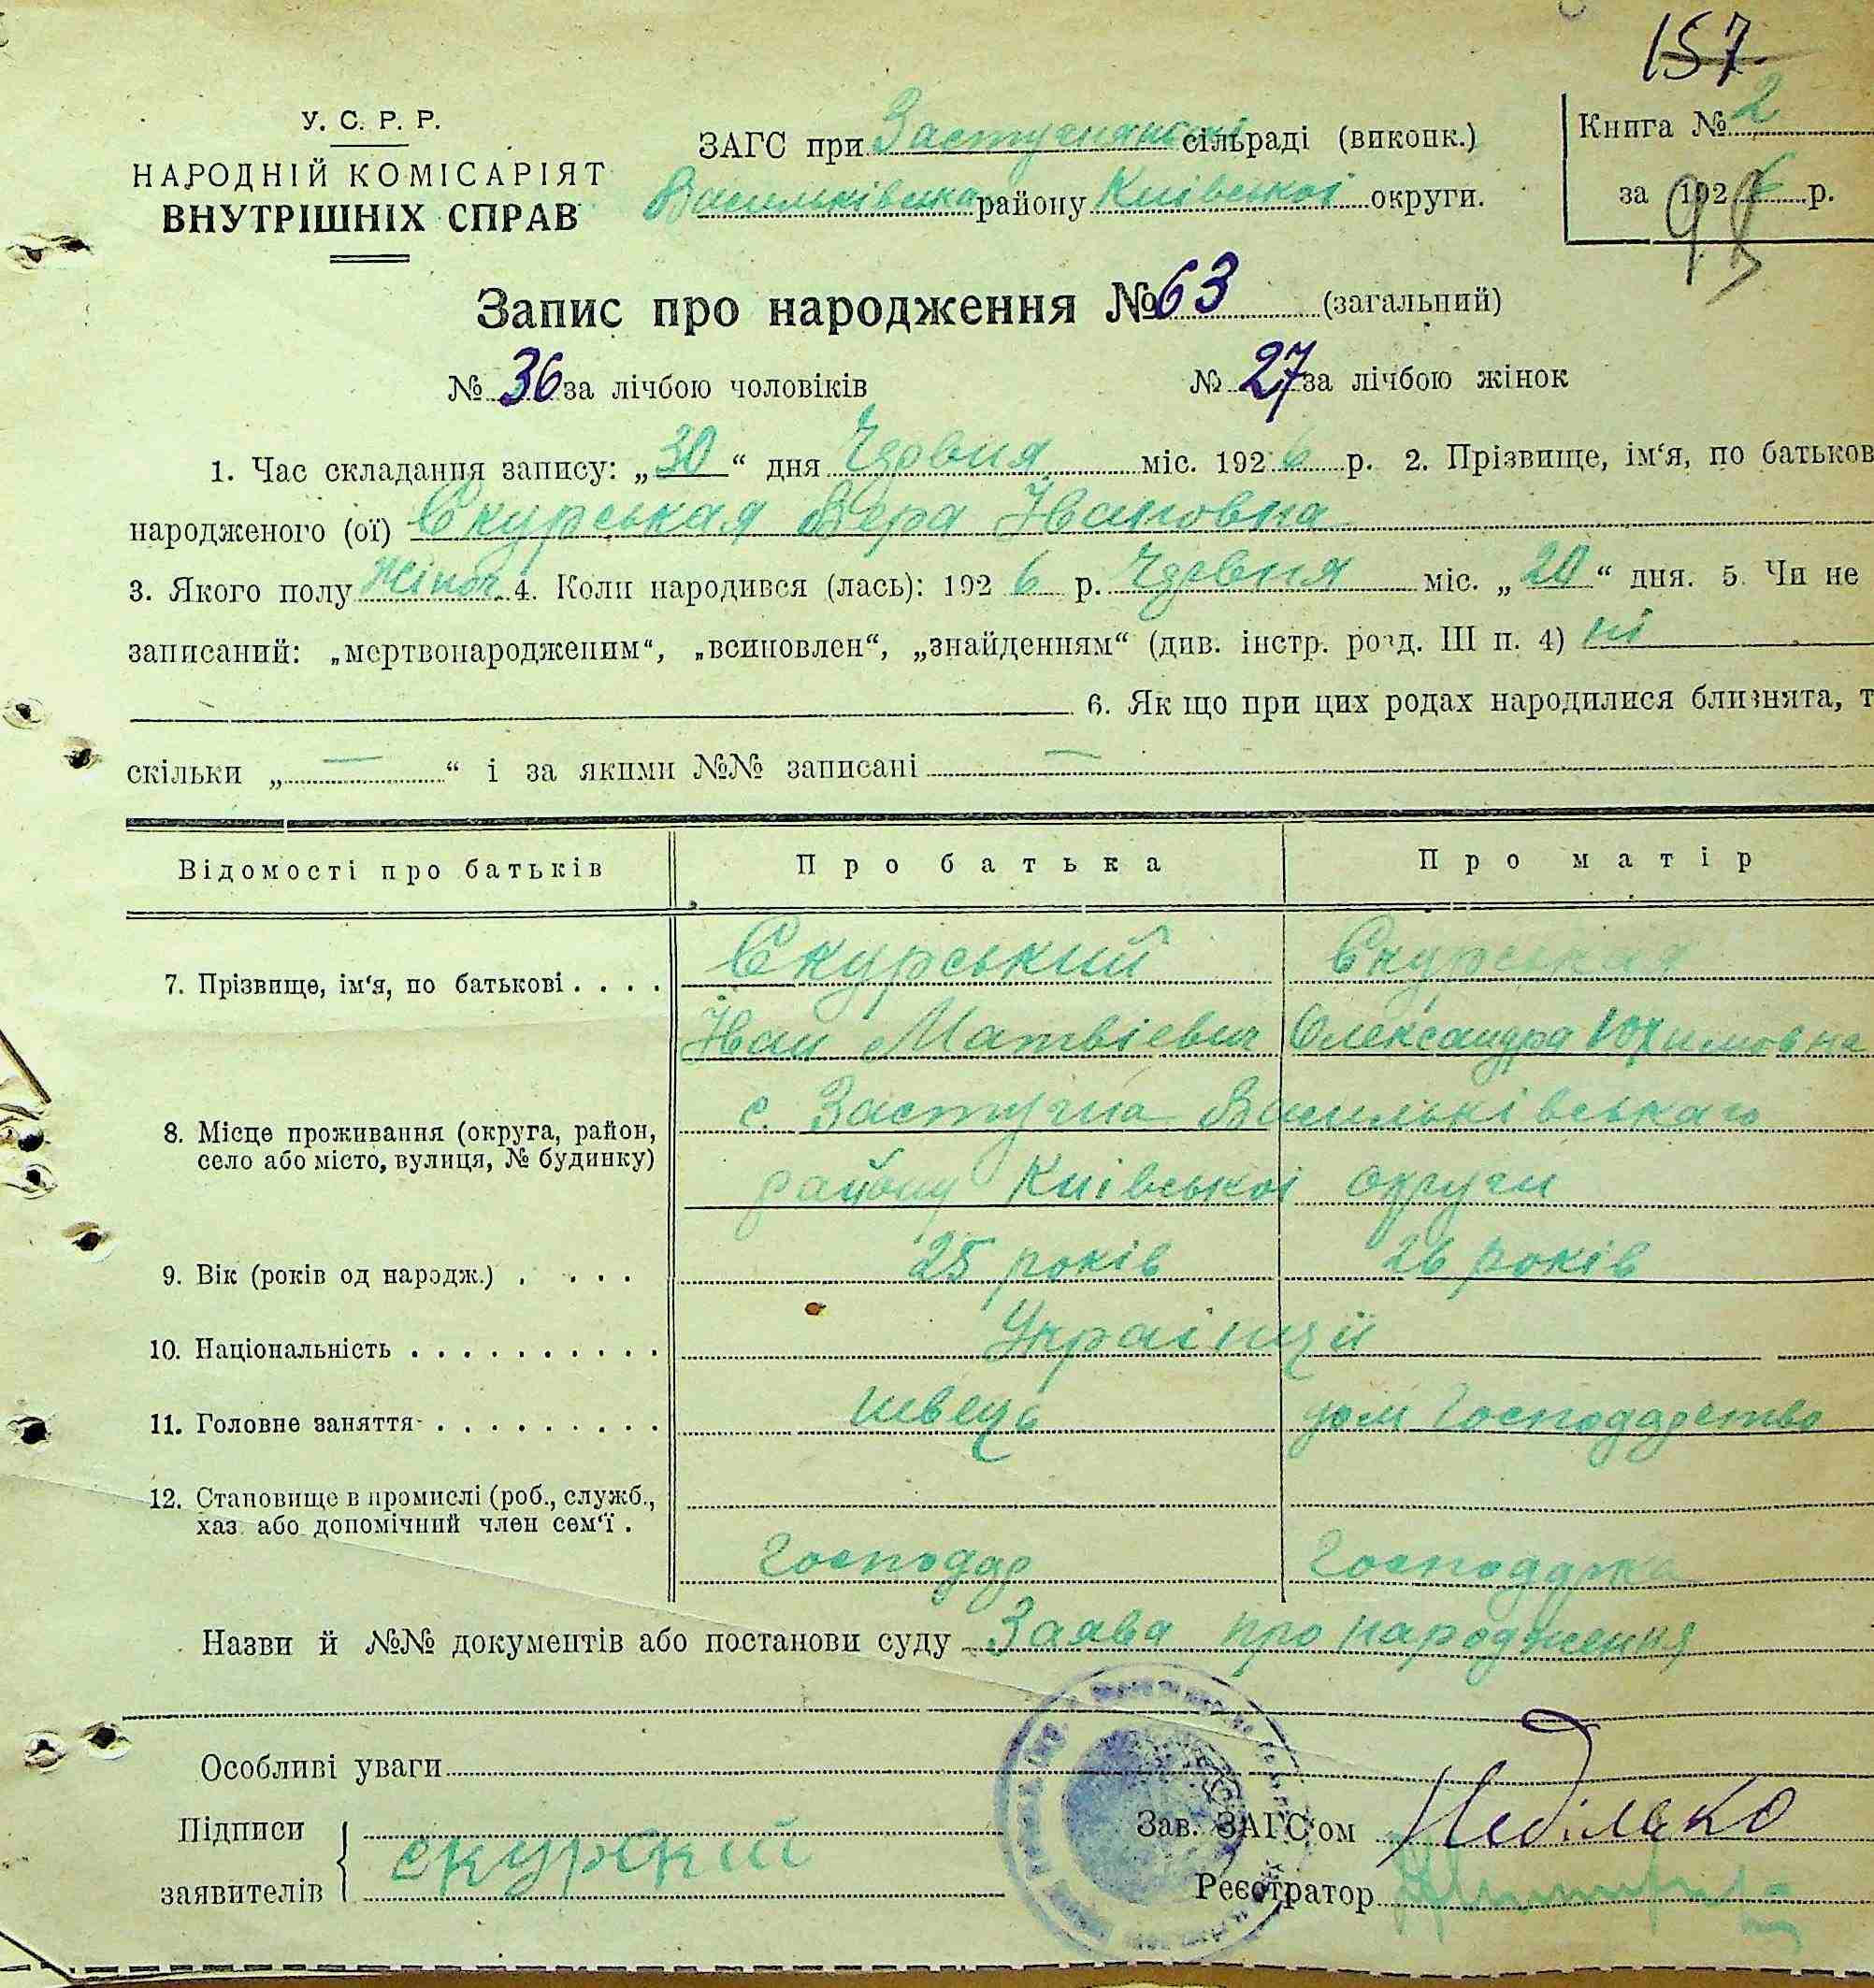 157
У. С. Р. Р.
НАРОДНІЙ КОМІСАРІЯТ
ВНУТРІШНІХ СПРАВ
ЗАГС при Застугнянські сільраді (виконк.)
Васильківська району Київської округи.
Книга № 2
за 1926 р.
93
Запис про народження № 63 (загальний)
№ 36 за лічбою чоловіків № 27 за лічбою жінок
1. Час складання запису: „30“ дня Червня міс. 1926 р. 2. Прізвище, ім‘я, по батьков
народженого (ої) Скурськая Вера Івановна
3. Якого полу жіноч 4. Коли народився (лась): 1926 р. Червня міс. „20“ дня. 5. Чи не
записаний: „мертвонародженим“, „всиновлен“, „знайденням“ (див. інстр. розд. III п. 4) ні
6. Як що при цих родах народилися близнята, т
скільки „ — “ і за якими №№ записані —
Відомості про батьків Про батька Про матір
7. Прізвище, ім‘я, по батькові . . . . Скурський Скурськая
Іван Матвієвич Олександра Юхимовна
8. Місце проживання (округа, район, с. Застугна Васильківського
село або місто, вулиця, № будинку) району Київської округи
9. Вік (років од народж.) . . . . 25 років 26 років
10. Національність . . . . . . . . . . Українці
11. Головне заняття . . . . . . . . . швець дом господарство
12. Становище в промислі (роб., служб.,
хаз. або допомічний член сем‘ї . господар господарка
Назви й №№ документів або постанови суду Заява про народження
Особливі уваги
Підписи
заявителів скурский
Зав. ЗАГС‘ом Неділько
Реєстратор